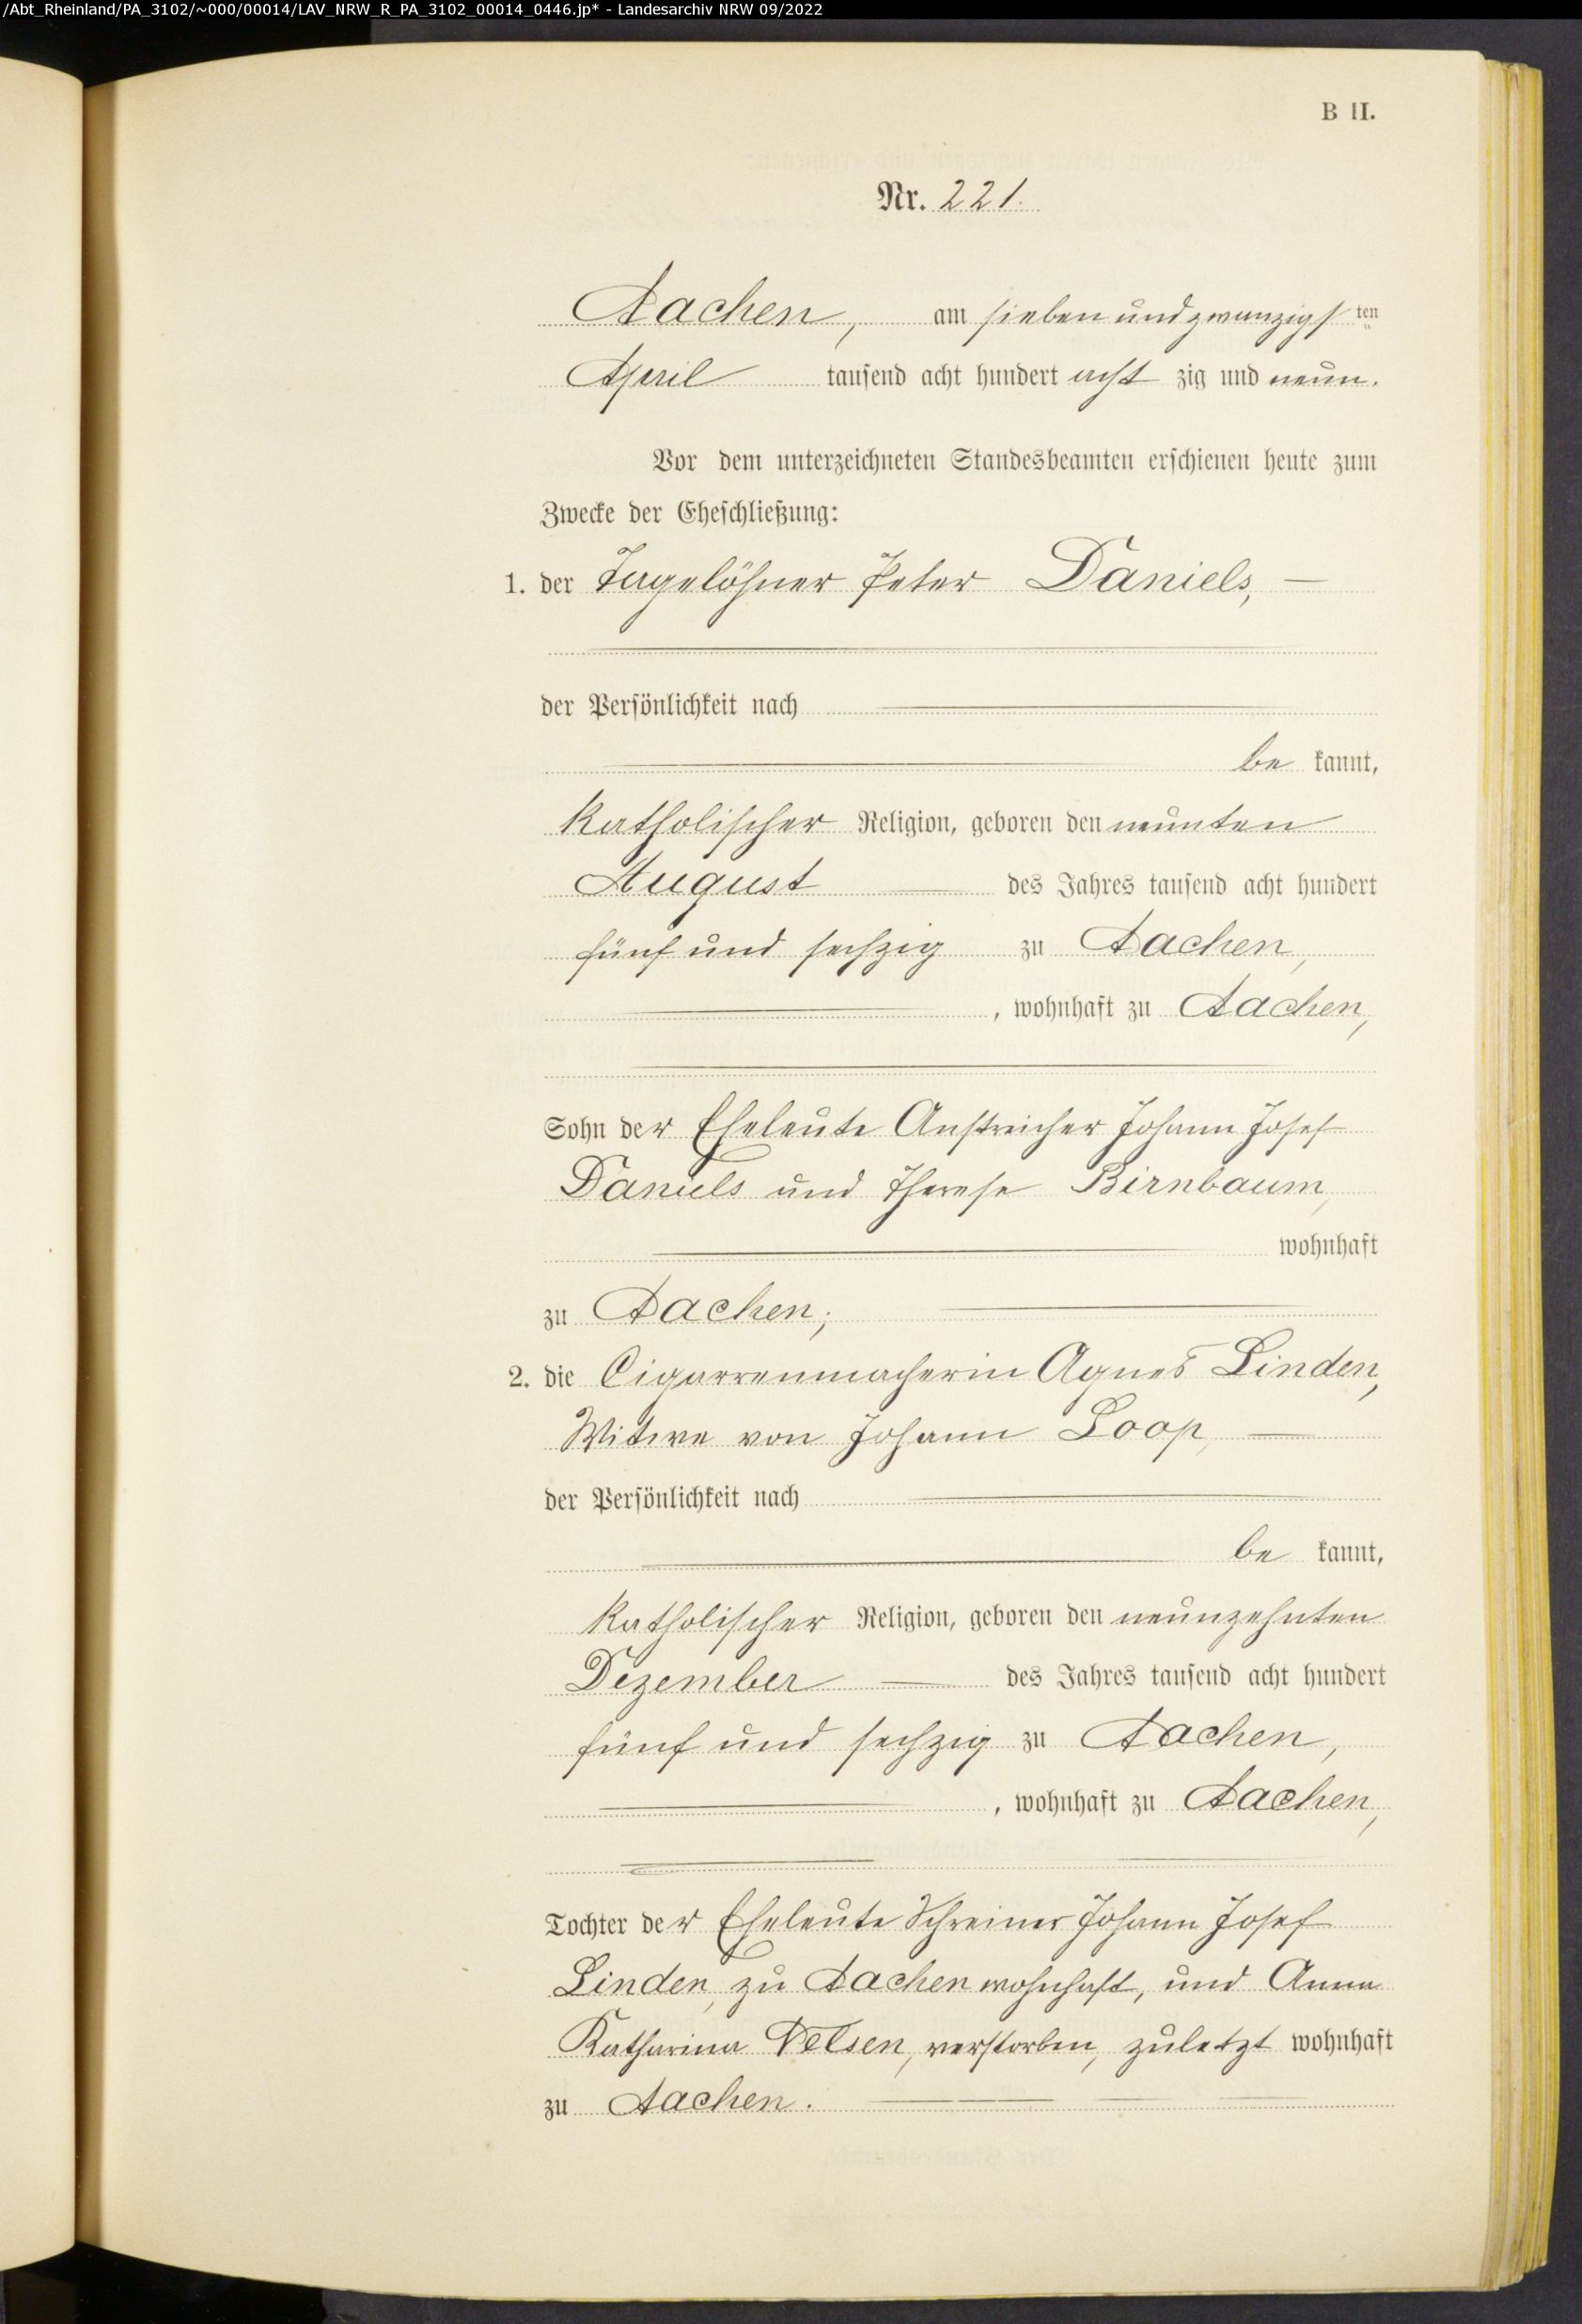 /Abt_Rheinland/PA_3102/~000/00014/LAV_NRW_R_PA_3102_00014_0446.jp* - Landesarchiv NRW 09/2022
B II.
Nr. 221.
Aachen, am sieben und zwanzigsten
April tausend acht hundert acht zig und neun.
Vor dem unterzeichneten Standesbeamten erschienen heute zum
Zwecke der Eheschließung:
1. der Tagelöhner Peter Daniels,
der Persönlichkeit nach
be kannt,
katholischer Religion, geboren den neunten
August des Jahres tausend acht hundert
fünf und sechzig zu Aachen,
, wohnhaft zu Aachen,
Sohn der Eheleute Anstreicher Johann Josef
Daniels und Therese Birnbaum,
wohnhaft
zu Aachen;
2. die Cigarrenmacherin Agnes Linden,
Witwe von Johann Loop,
der Persönlichkeit nach
be kannt,
katholischer Religion, geboren den neunzehnten
Dezember des Jahres tausend acht hundert
fünf und sechzig zu Aachen,
, wohnhaft zu Aachen,
Tochter der Eheleute Schreiner Johann Josef
Linden, zu Aachen wohnhaft, und Anna
Katharina verstorben, zuletzt wohnhaft
zu Aachen.